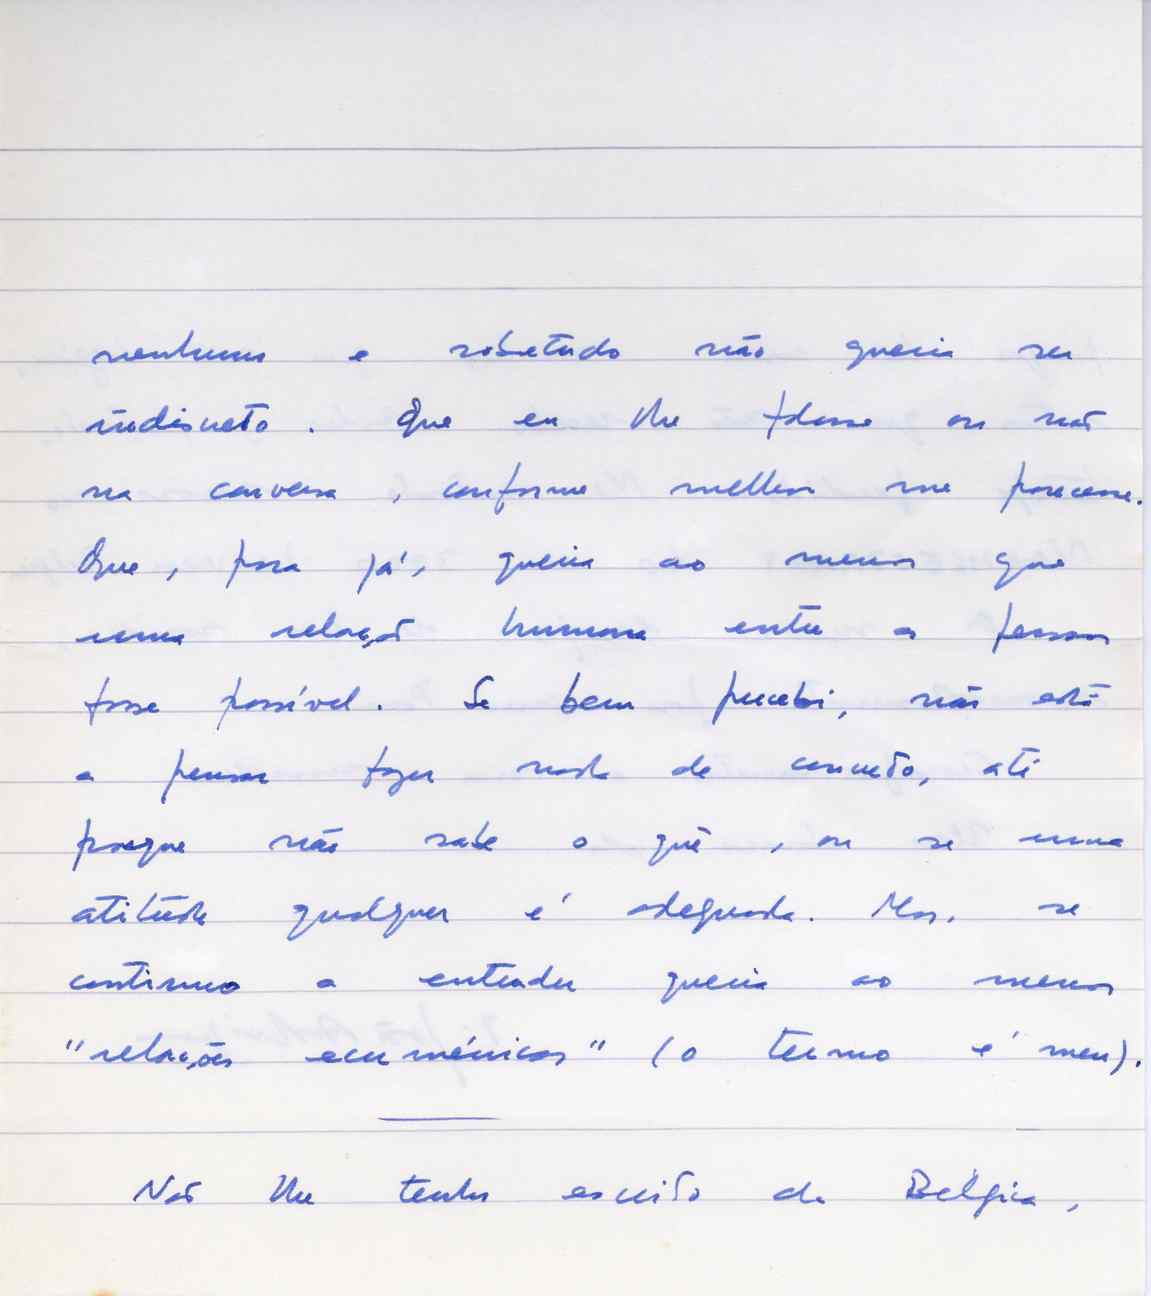 nenhuma e sobretudo não queria ser
indiscreto. Que eu lhe falasse ou não
na conversa, conforme melhor me parecesse.
Que, para já, queria ao menos que
uma relação humana entre as pessoas
fosse possível. Se bem percebi, não está
a pensar fazer nada de concreto, até
porque não sabe o quê, ou se uma
atitude qualquer é adequada. Mas, se
continuo a entender queria ao menos
"relações ecuménicas" (o termo é meu).
Não lhe tenho escrito da Bélgica,